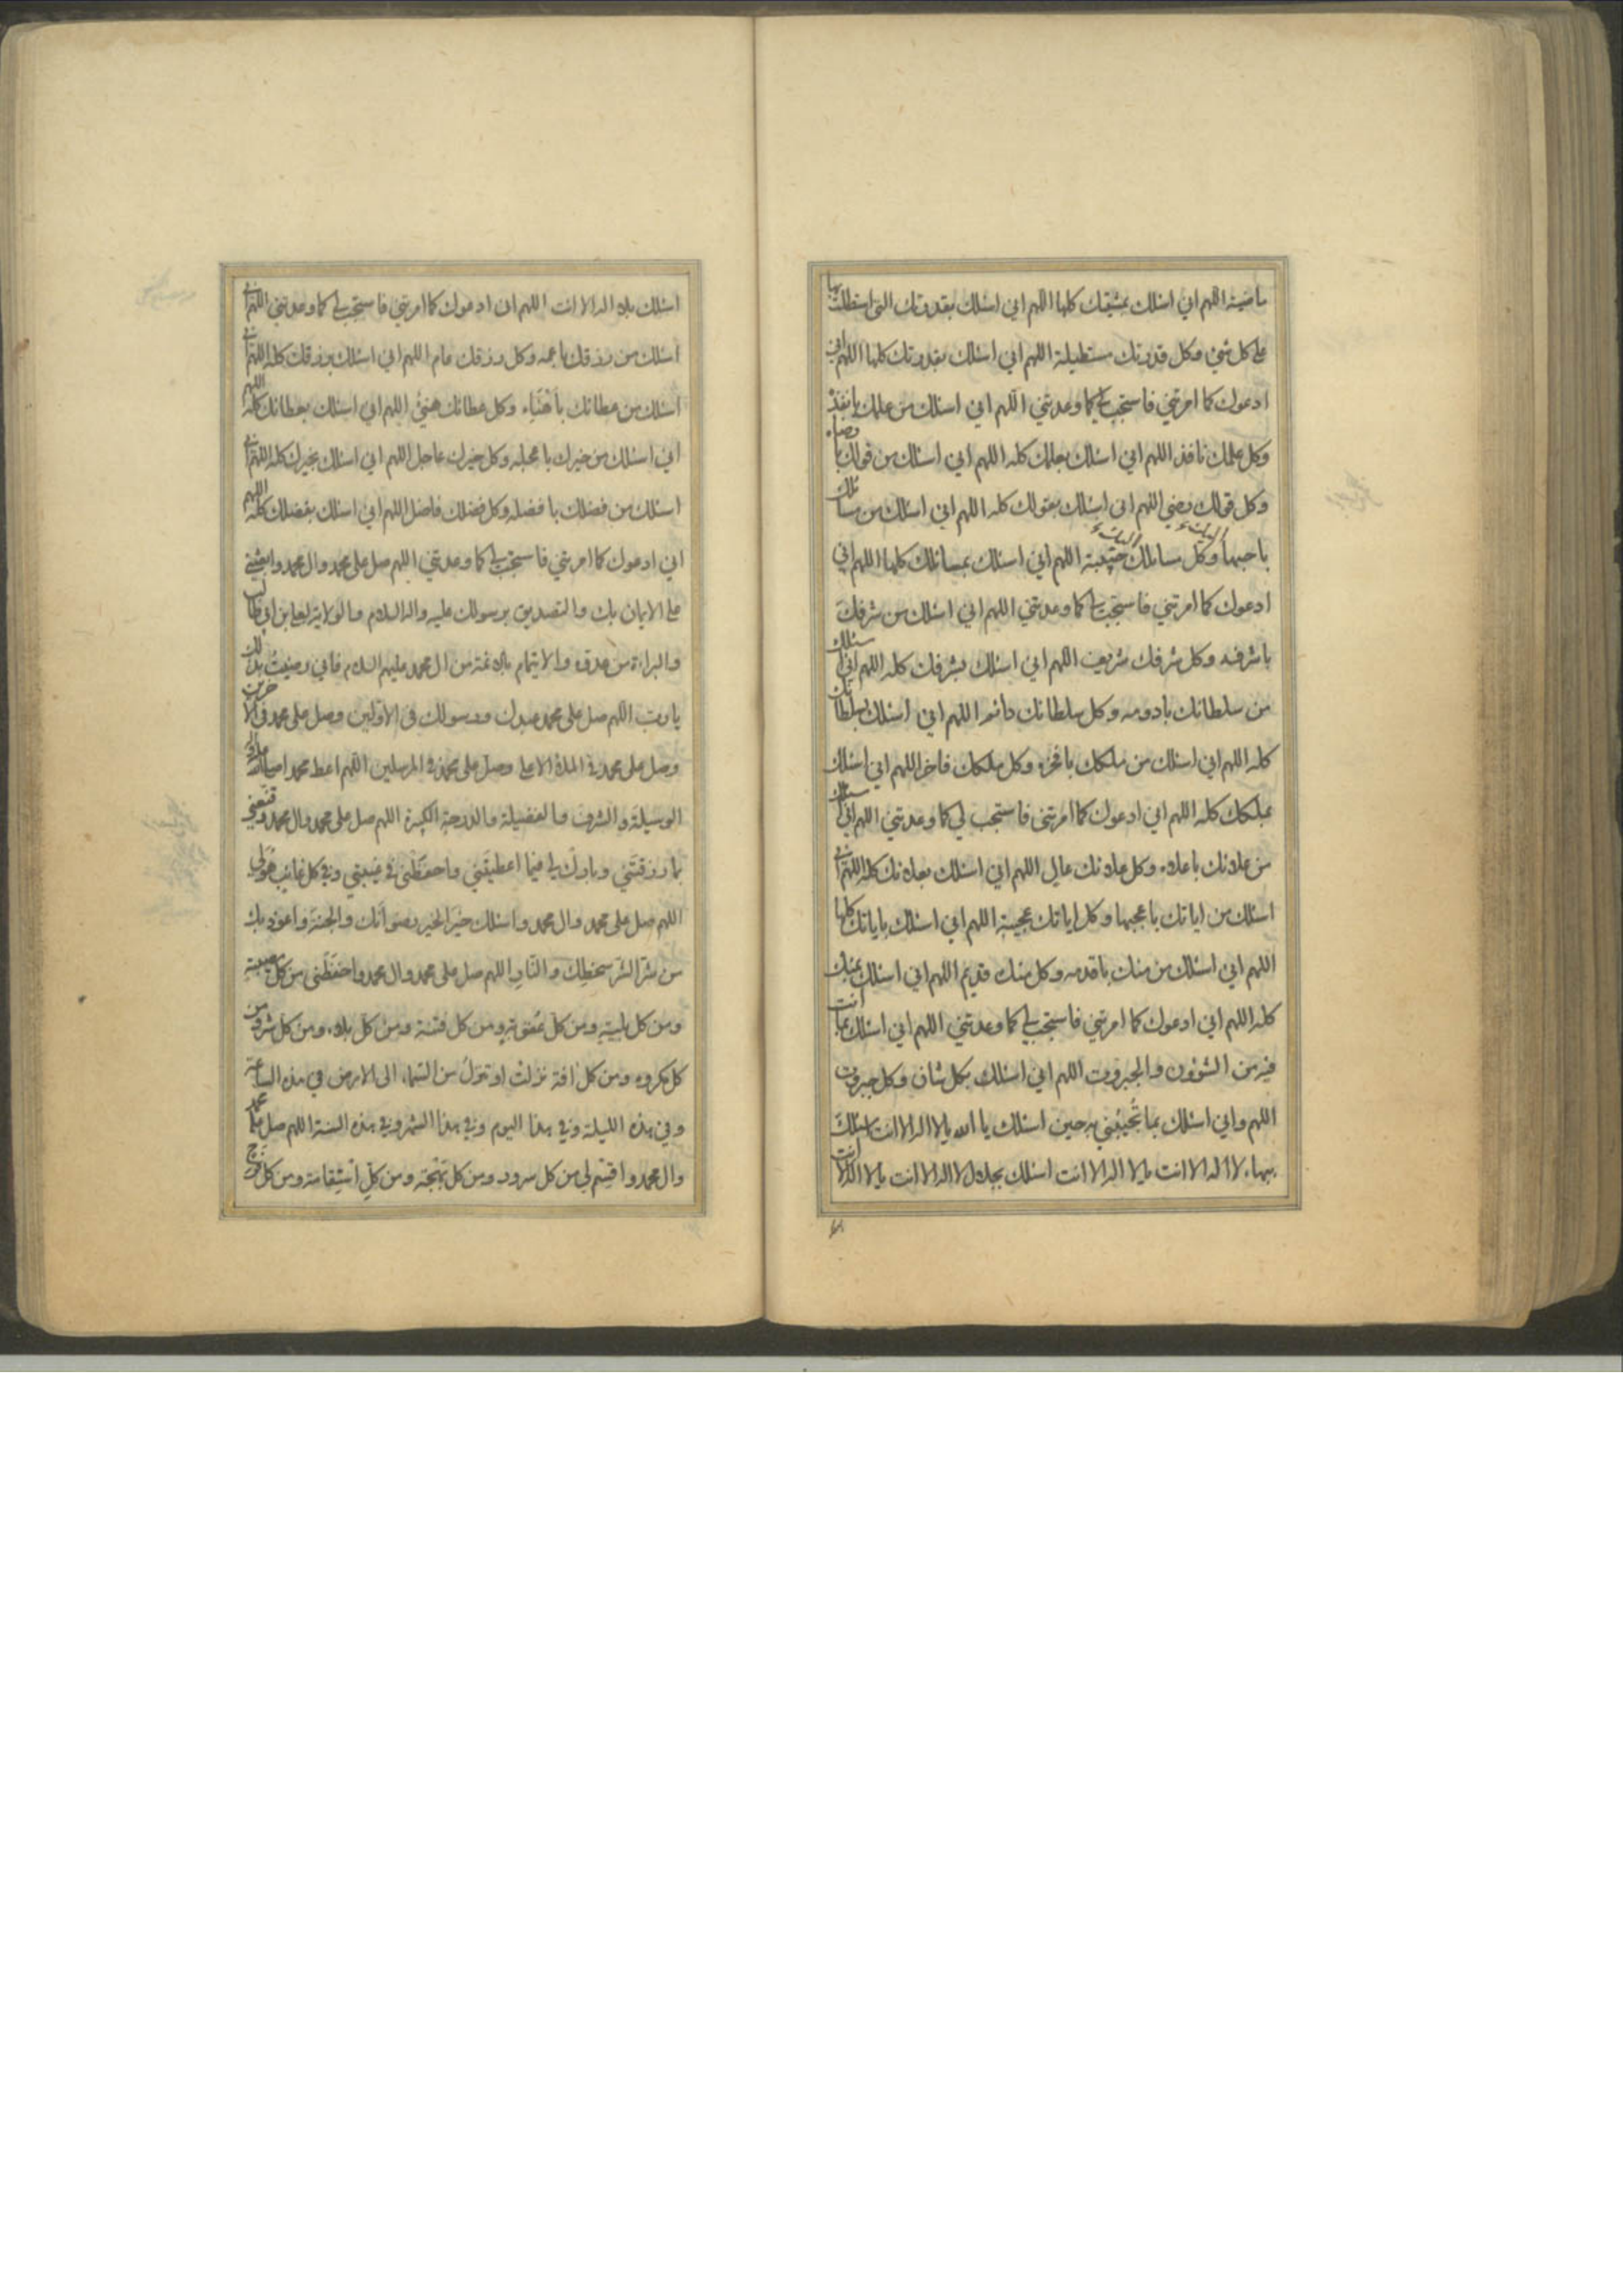 ماضية اللهم اني اسئلك بمشيتك كلها اللهم اني اسئلك بقدرتك التي استطلت بها
على كل شئ وكل قدرتك مستطيلة اللهم اني اسئلك بقدرتك كلها اللهم اني
ادعوك كما امرتني فاستجب لي كما وعدتني اللهم اني اسئلك من علمك بانفذه
وكل علمك نافذ اللهم اني اسئلك بعلمك كله اللهم اني اسئلك من قولك بارضاه
وكل قولك رضي اللهم اني اسئلك بقولك كله اللهم اني اسئلك من مسائلك
باحبها وكل مسائلك حبيبة اللهم اني اسئلك بمسائلك كلها اللهم اني
ادعوك كما امرتني فاستجب لي كما وعدتني اللهم اني اسئلك من شرفك
باشرفه وكل شرفك شريف اللهم اني اسئلك بشرفك كله اللهم اني اسئلك
من سلطانك بادومه وكل سلطانك دائم اللهم اني اسئلك بسلطانك
كله اللهم اني اسئلك من ملكك بافخره وكل ملكك فاخر اللهم اني اسئلك
بملكك كله اللهم اني ادعوك كما امرتني فاستجب لي كما وعدتني اللهم اني اسئلك
من علائك باعلاه وكل علائك عالي اللهم اني اسئلك بعلائك كله اللهم اني
اسئلك من اياتك باعجبها وكل اياتك عجيبة اللهم اني اسئلك باياتك كلها
اللهم اني اسئلك من منك باقدمه وكل منك قديم اللهم اني اسئلك بمنك
كله اللهم اني ادعوك كما امرتني فاستجب لي كما وعدتني اللهم اني اسئلك بما انت
فيه من الشؤون والجبروت اللهم اني اسئلك بكل شان وكل جبروت
اللهم واني اسئلك بما تُجيبُني به حين اسئلك يا الله يا لا اله الا انت اسئلك
ببهاء لا اله الا انت يا لا اله الا انت اسئلك بجلال لا اله الا انت يا لا اله الا انت
اسئلك بلا اله الا انت اللهم اني ادعوك كما امرتني فاستجب لي كما وعدتني اللهم اني
اسئلك من رزقك باعمه وكل رزقك عام اللهم اني اسئلك برزقك كله اللهم اني
اسئلك من عطائك باهناء وكل عطائك هنئ اللهم اني اسئلك بعطائك كله اللهم
اني اسئلك من خيرك باعجله وكل خيرك عاجل اللهم اني اسئلك بخيرك كله اللهم اني
اسئلك من فضلك بافضله وكل فضلك فاضل اللهم اني اسئلك بفضلك كله اللهم
اني ادعوك كما امرتني فاستجب لي كما وعدتني اللهم صل على محمد وال محمد وابعثني
على الايمان بك والتصديق برسولك عليه واله السلام والولاية لعلي بن ابي طالب
والبراءة من عدوه والايتمام بالائمة من ال محمد عليهم السلام فاني رضيتُ بذلك
يا رب اللهم صل على محمد عبدك ورسولك في الاولين وصل على محمد في الاخرين
وصل على محمد في الملاء الاعلى وصل على محمد في المرسلين اللهم اعط محمدا صلى الله عليه واله
الوسيلة والشرف والفضيلة والدرجة الكبيرة اللهم صل على محمد وال محمد وقنعني
بما رزقتني وبارك لي فيما اعطيتَني واحفظني في غيبتي وفي كل غائب هو لي
اللهم صل على محمد وال محمد واسئلك خير الخير رضوانك والجنة واعوذ بك
من شر الشر سخطك والنار اللهم صل على محمد وال محمد واحفظني من كل مصيبة
ومن كل بلية ومن كل عقوبة ومن كل فتنة ومن كل بلاء ومن كل شر ومن
كل مكروه ومن كل افة نزلت او تنزل من السماء الى الارض في هذه الساعة
وفي هذه الليلة وفي هذا اليوم وفي هذا الشهر وفي هذه السنة اللهم صل على محمد
وال محمد واقسم لي من كل سرور ومن كل بهجة ومن كل استقامة ومن كل فرج